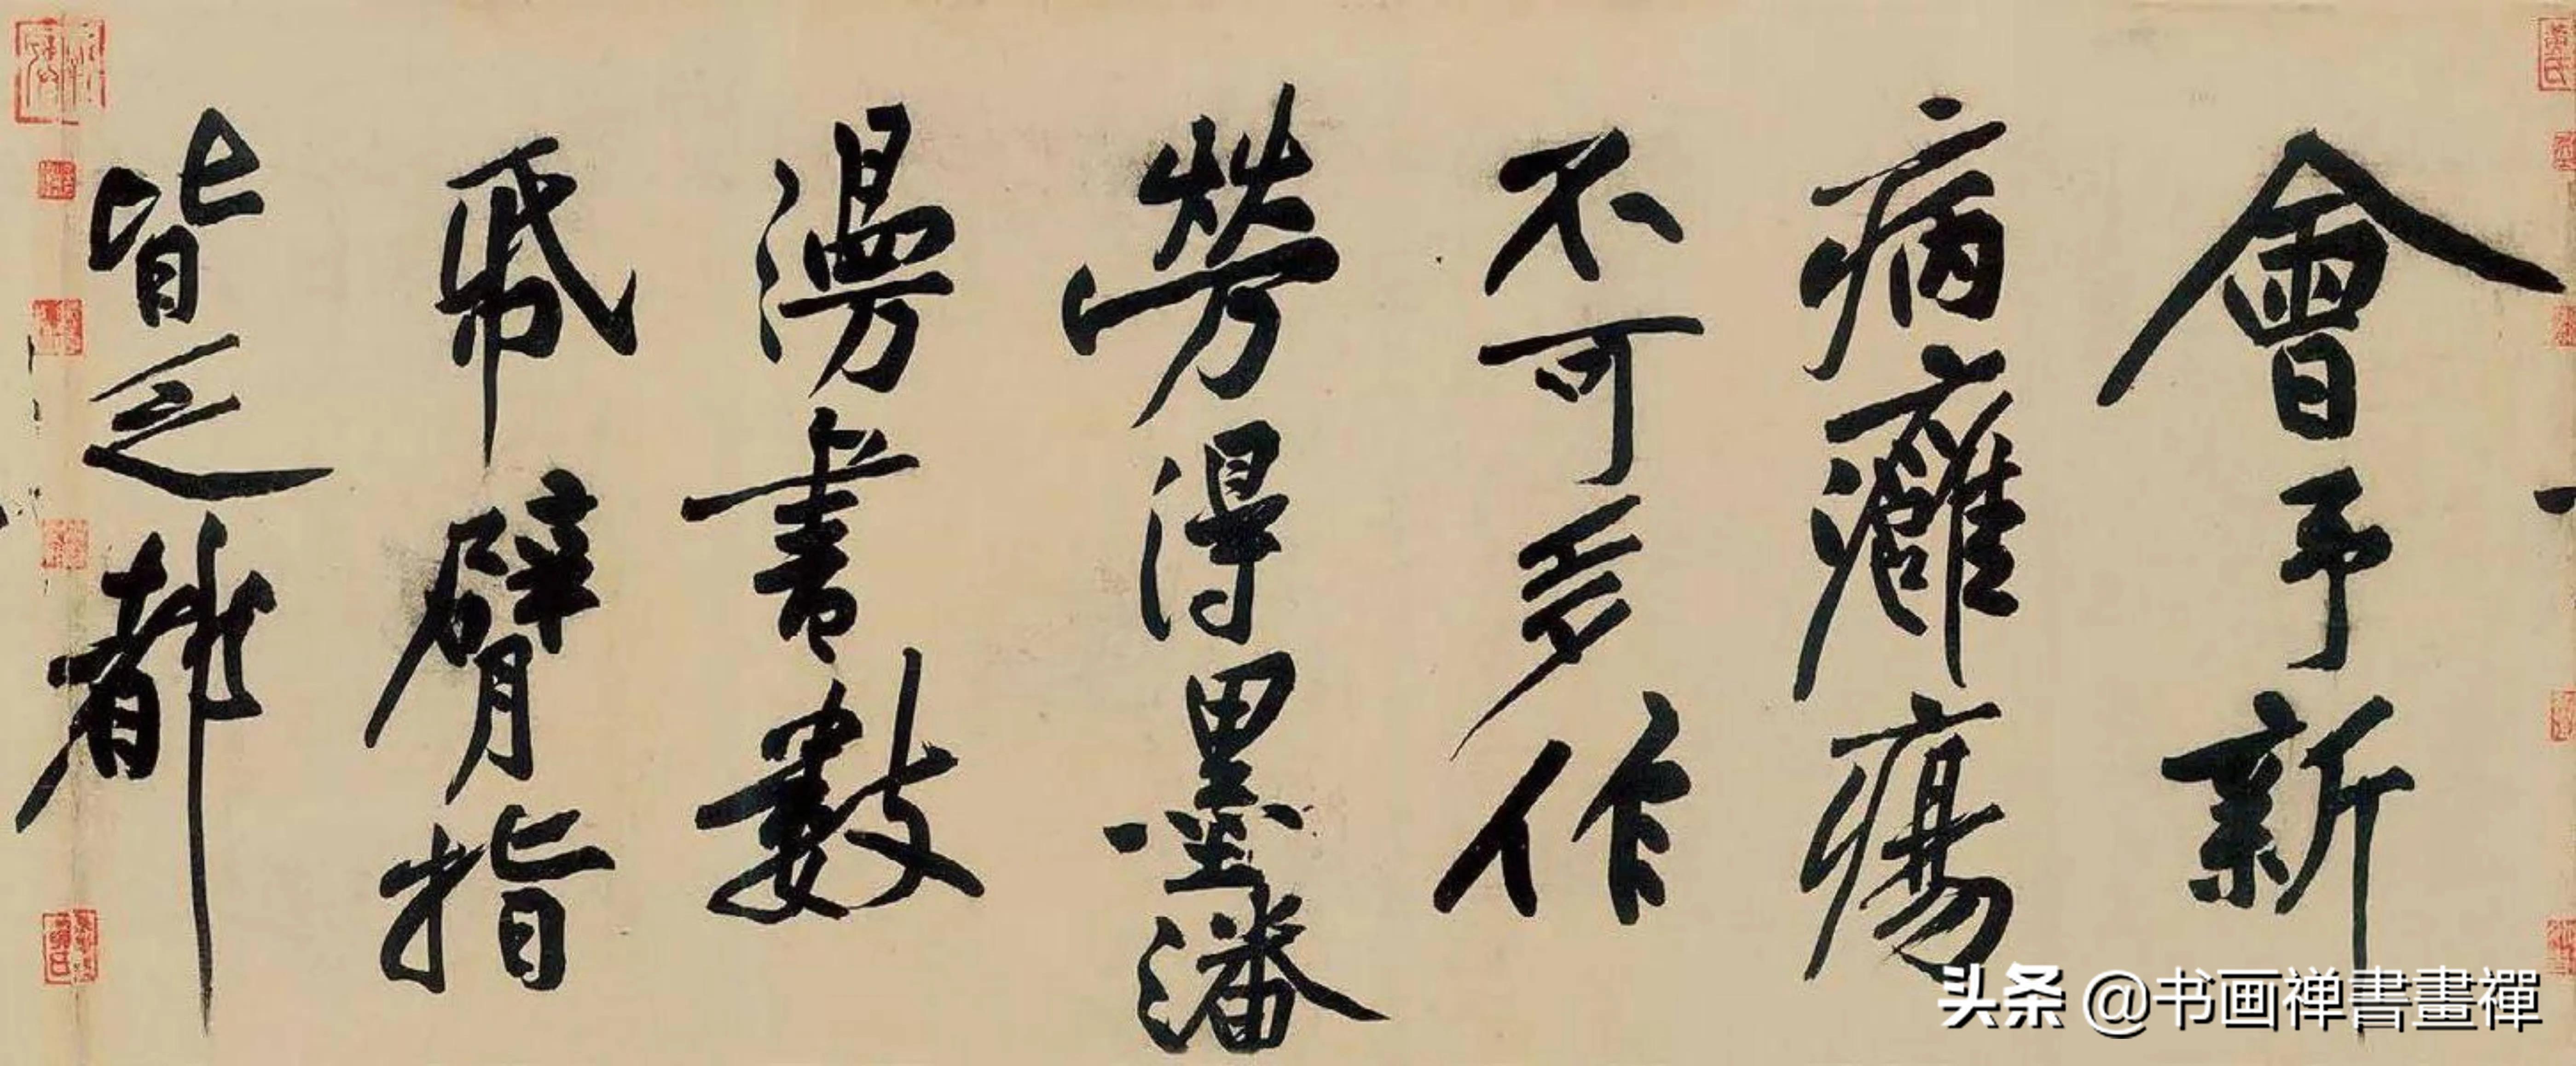 會予新
病癰瘍
不可多作
勞得墨潘
漫書數
帋臂指
皆乏都
头条 @书画禅書畫禪